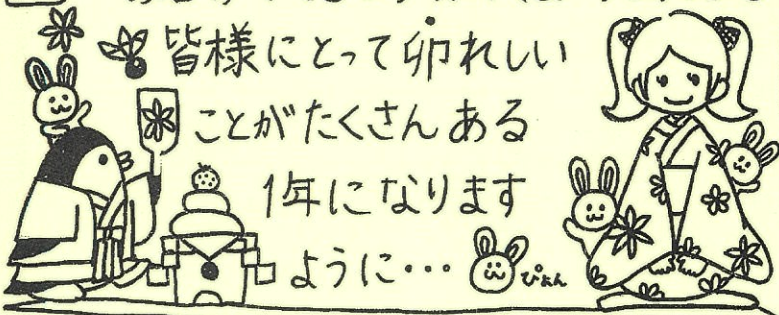 皆様にとって卯れしい
ことがたくさんある
1年になります
ように…
ぴょん